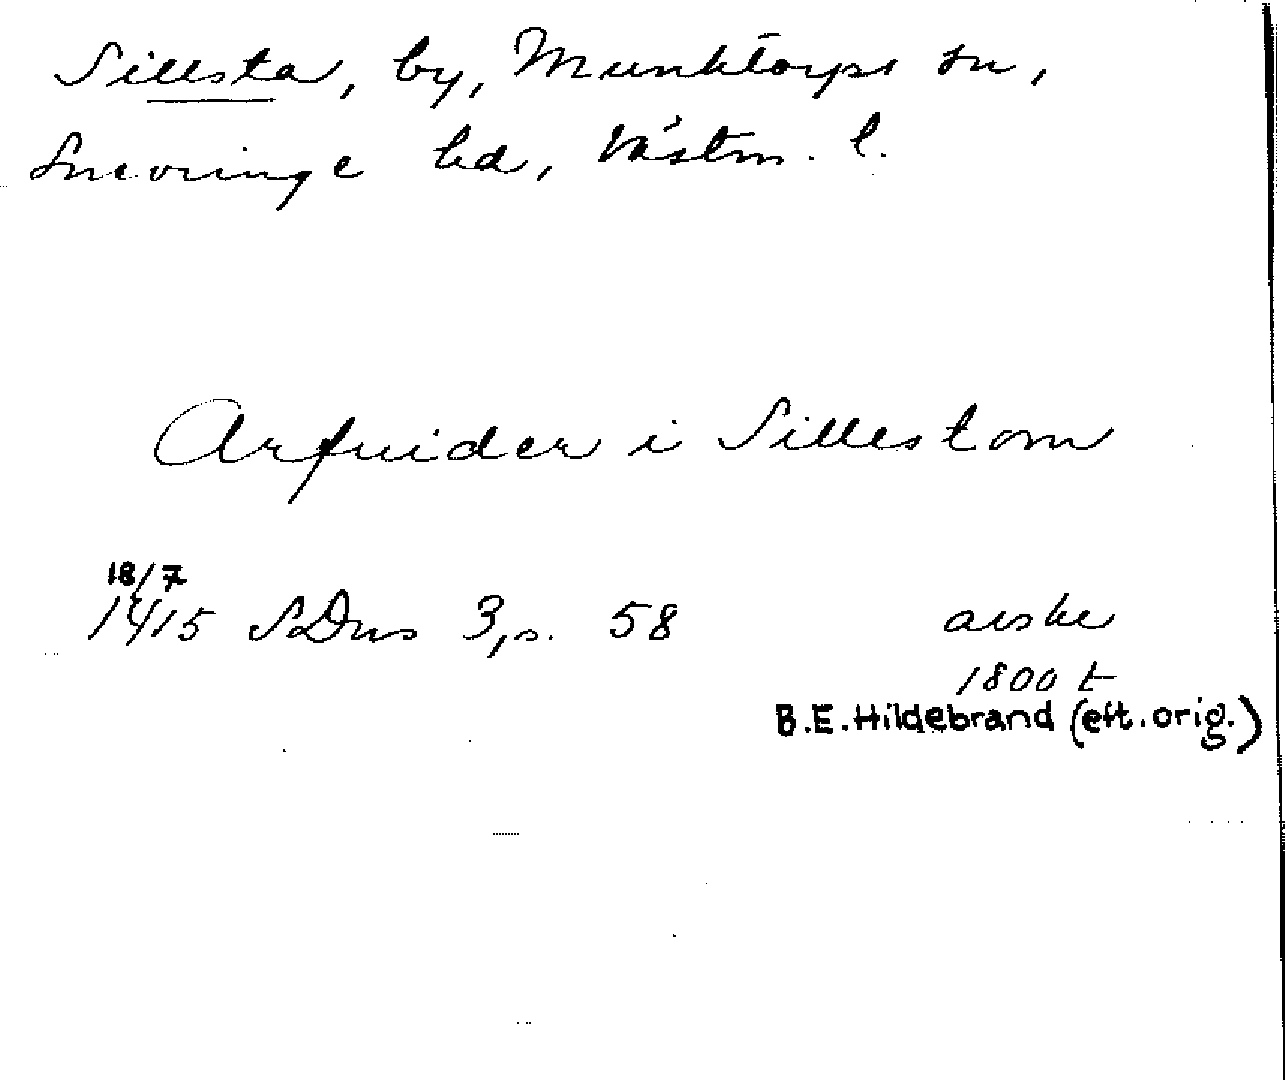 Sillsta, by, Munktorps sn,
Snevringe hd, Västm. l.
Arfuider i Sillestom
18/7
1415 SDns 3, s. 58 avskr
1800 t
B.E.Hildebrand (eft.orig.)